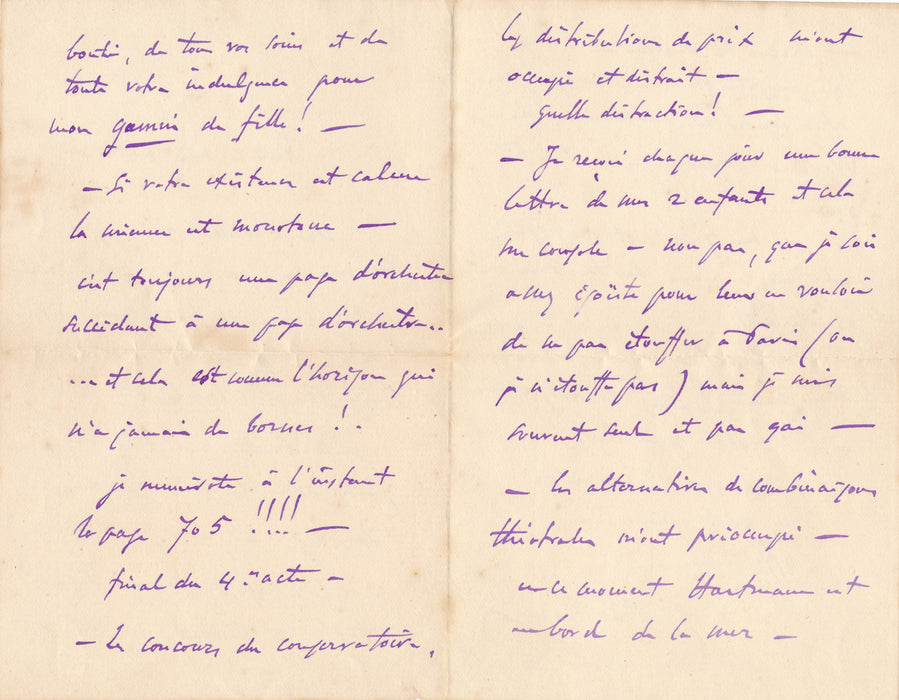 bonté, de tous vos soins et de
toute votre indulgence pour
mon gamin de fille ! —
— Si votre existence est calme
la mienne est monotone —
c'est toujours une page d'orchestre
succédant à une page d'orchestre..
... et cela est comme l'horizon qui
n'a jamais de bornes !.
je numérote à l'instant
la page 705 !!!! —
final du 4me acte —
— Les concours du conservatoire,
les distributions de prix m'ont
occupé et distrait —
Quelle distraction !  —
— Je reçois chaque jour une bonne
lettre de mes 2 enfants et cela
me console — non pas, que je sois
assez égoïste pour leur en vouloir
de ne pas étouffer à Paris (où
je n'étouffe pas) mais je suis
souvent seul et pas gai —
— les alternatives de combinaisons
théâtrales m'ont préoccupé —
en ce moment Hartmann est
au bord de la mer —